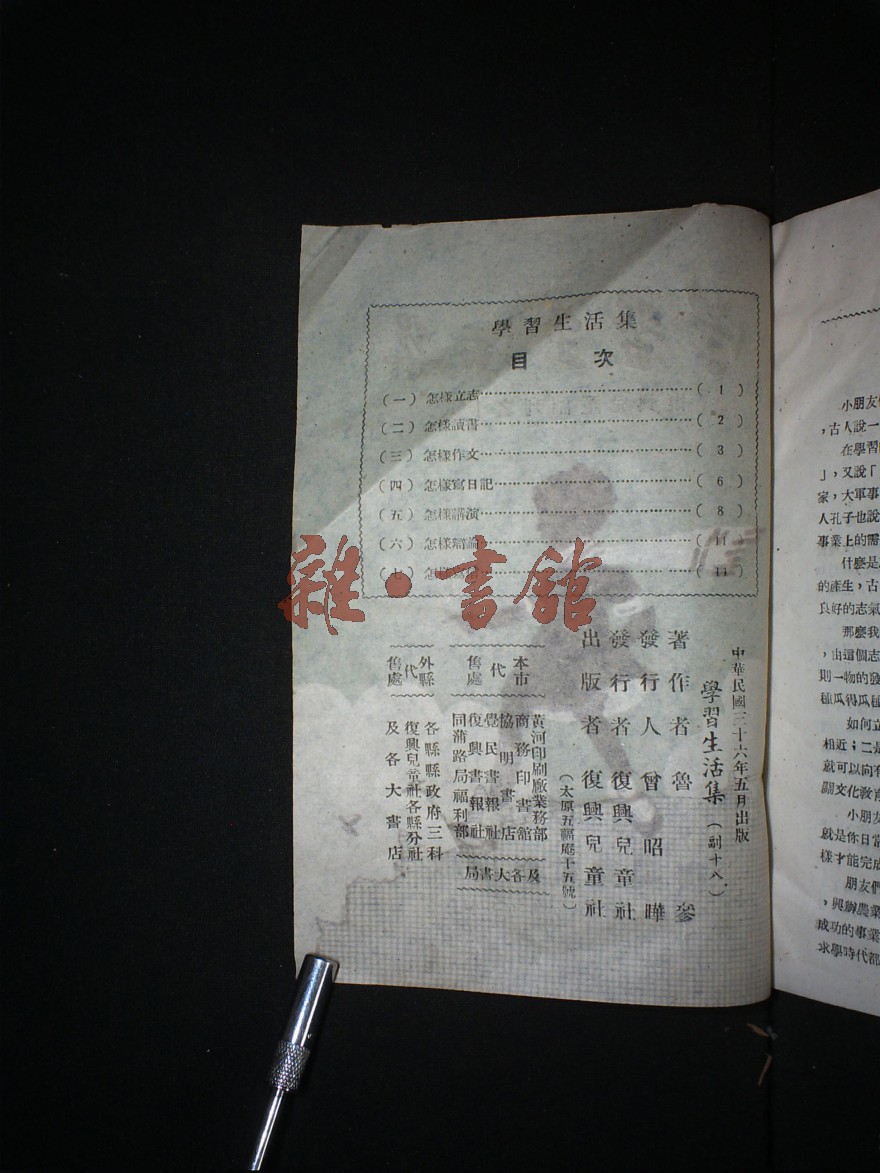 學習生活集
目 次
(一) 怎樣立志 ( 1 )
(二) 怎樣讀書 ( 2 )
(三) 怎樣作文 ( 3 )
(四) 怎樣寫日記 ( 6 )
(五) 怎樣講演 ( 8 )
(六) 怎樣辯論 ( 11 )
(七) 怎樣
雜·書館
中華民國三十六年五月出版
學習生活集(副十八)
著作者 魯 參
發行人 曾昭曄
發行者 復興兒童社
出版者 復興兒童社
(太原五福庵十五號)
本市代售處
黃河印刷廠業務部
商務印書館
協明書店
覺民書報社
復興書報社
同蒲路局福利部
及各大書局
外縣代售處
各縣縣政府三科
復興兒童社各縣分社
及各大書店
小朋友
,古人說一
在學習
」,又說「
家,大軍事
人孔子也說
事業上的需
什麼是
的產生,古
良好的志氣
那麼我
,由這個志
則一物的發
種瓜得瓜種
如何立
相近;二是
就可以向有
關文化教育
小朋友
就是你日常
樣才能完成
朋友們
,興辦農業
成功的事業
求學時代都